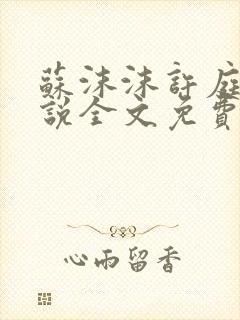 蘇沫沫許庭
說全文免費
心雨留香